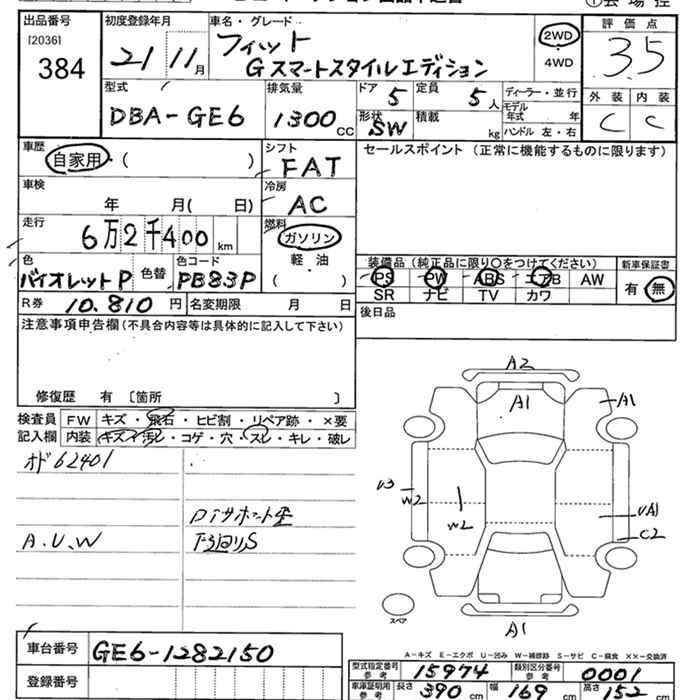 出品番号
[2036]
384
初度登録年月
21 11月
車名・グレード
フィット
Gスマートスタイルエディション
2WD
4WD
評価点
3.5
外装 内装
C C
型式
DBA-GE6
排気量
1300cc
ドア 5
定員 5人
形状 SW
積載 kg
ディーラー・並行
モデル年式 年
ハンドル 左・右
車歴
自家用・( )
シフト
FAT
セールスポイント (正常に機能するものに限ります)
車検
年 月( 日)
冷房
AC
走行
6万2千400km
燃料
ガソリン
軽・油
( )
色
バイオレットP
色替
色コード
PB83P
装備品(純正品に限り○をつけてください)
PS PW ABS エアB AW
SR ナビ TV カワ
新車保証書
有 無
R券 10.810円
名変期限 月 日
後日品
注意事項申告欄(不具合内容等は具体的に記入して下さい)
修復歴 有 〔箇所 〕
検査員記入欄
FW キズ・飛石・ヒビ割・リペア跡・×要
内装 キズ・汚レ・コゲ・穴・スレ・キレ・破レ
オド62401
A.U.W
下廻りS
A2
A1
A1
U3
W2
W2
UA1
C2
スペア
A1
A-キズ E-エクボ U-凹み W-補修跡 S-サビ C-腐食 ××-交換済
車台番号 GE6-1282150
登録番号
型式指定番号 参考 15974
類別区分番号 参考 0001
車庫証明用 参考 長さ 390cm 幅 169cm 高さ 152cm